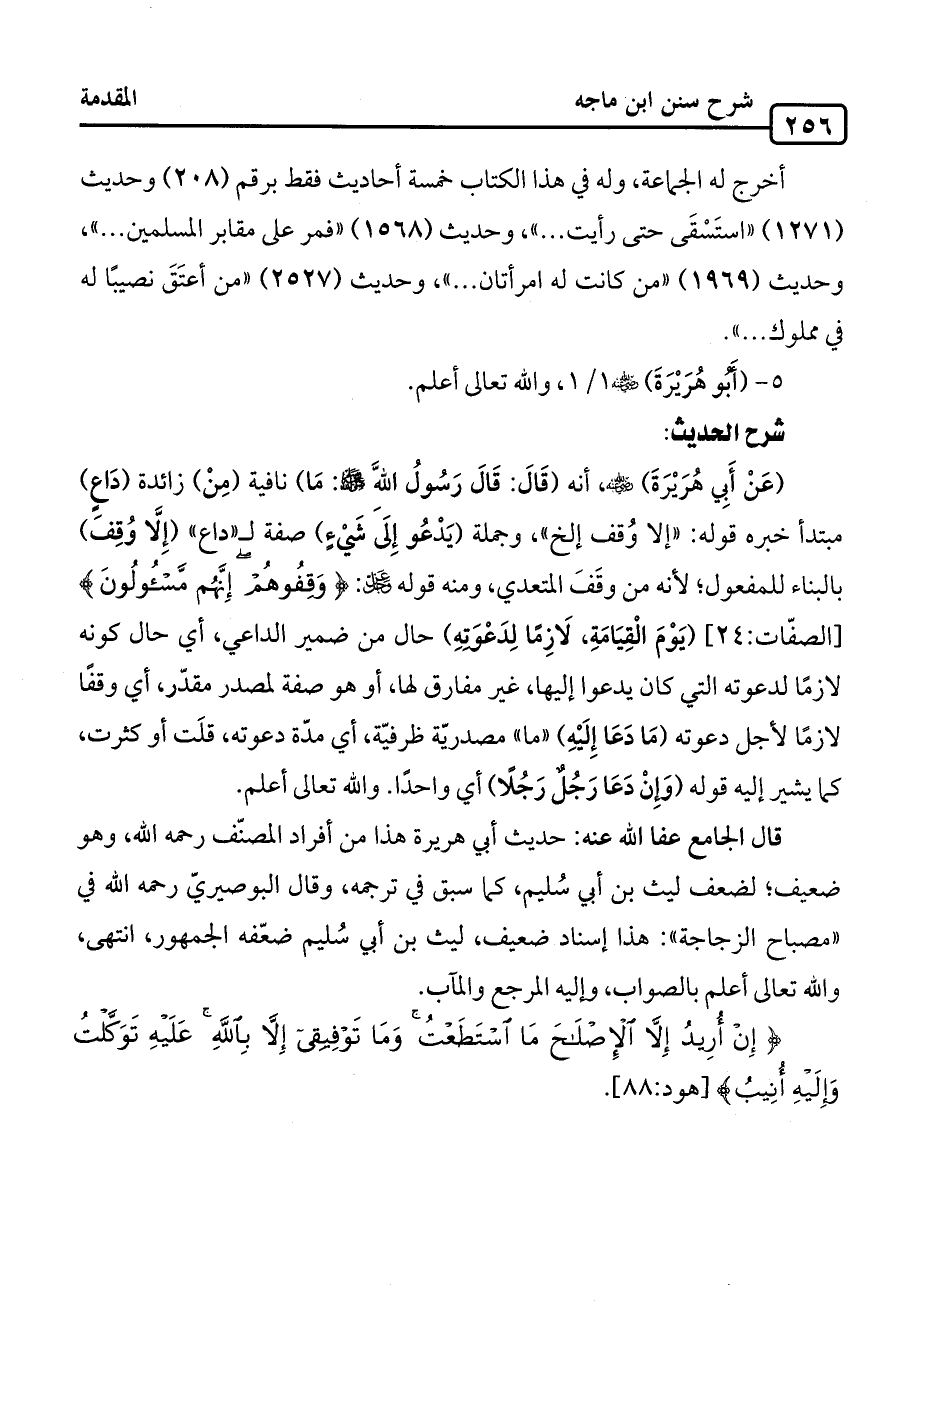 ٢٥٦ شرح سنن ابن ماجه المقدمة
أخرج له الجماعة، وله في هذا الكتاب خمسة أحاديث فقط برقم (٢٠٨) وحديث
(١٢٧١) «استَسْقَى حتى رأيت...»، وحديث (١٥٦٨) «فمر على مقابر المسلمين...»،
وحديث (١٩٦٩) «من كانت له امرأتان...»، وحديث (٢٥٢٧) «من أعتَقَ نصيبًا له
في مملوك...».
٥- (أَبُو هُرَيْرَةَ) رضي الله عنه ١/ ١، والله تعالى أعلم.
شرح الحديث:
(عَنْ أَبِي هُرَيْرَةَ) رضي الله عنه، أنه (قَالَ: قَالَ رَسُولُ اللهِ ﷺ: مَا) نافية (مِنْ) زائدة (دَاعٍ)
مبتدأ خبره قوله: «إلا وُقف إلخ»، وجملة (يَدْعُو إِلَى شَيْءٍ) صفة لـ«داع» (إِلَّا وُقِفَ)
بالبناء للمفعول؛ لأنه من وقَفَ المتعدي، ومنه قوله ﷻ: ﴿وَقِفُوهُمْ إِنَّهُم مَّسْئُولُونَ﴾
[الصفّات:٢٤] (يَوْمَ الْقِيَامَةِ، لَازِمًا لِدَعْوَتِهِ) حال من ضمير الداعي، أي حال كونه
لازمًا لدعوته التي كان يدعوا إليها، غير مفارق لها، أو هو صفة لمصدر مقدّر، أي وقفًا
لازمًا لأجل دعوته (مَا دَعَا إِلَيْهِ) «ما» مصدريّة ظرفيّة، أي مدّة دعوته، قلَت أو كثرت،
كما يشير إليه قوله (وَإِنْ دَعَا رَجُلٌ رَجُلًا) أي واحدًا. والله تعالى أعلم.
قال الجامع عفا الله عنه: حديث أبي هريرة هذا من أفراد المصنّف رحمه الله، وهو
ضعيف؛ لضعف ليث بن أبي سُليم، كما سبق في ترجمه، وقال البوصيريّ رحمه الله في
«مصباح الزجاجة»: هذا إسناد ضعيف، ليث بن أبي سُليم ضعّفه الجمهور، انتهى،
والله تعالى أعلم بالصواب، وإليه المرجع والمآب.
﴿إِنْ أُرِيدُ إِلَّا ٱلْإِصْلَٰحَ مَا ٱسْتَطَعْتُ ۚ وَمَا تَوْفِيقِىٓ إِلَّا بِٱللَّهِ ۚ عَلَيْهِ تَوَكَّلْتُ
وَإِلَيْهِ أُنِيبُ﴾ [هود:٨٨].